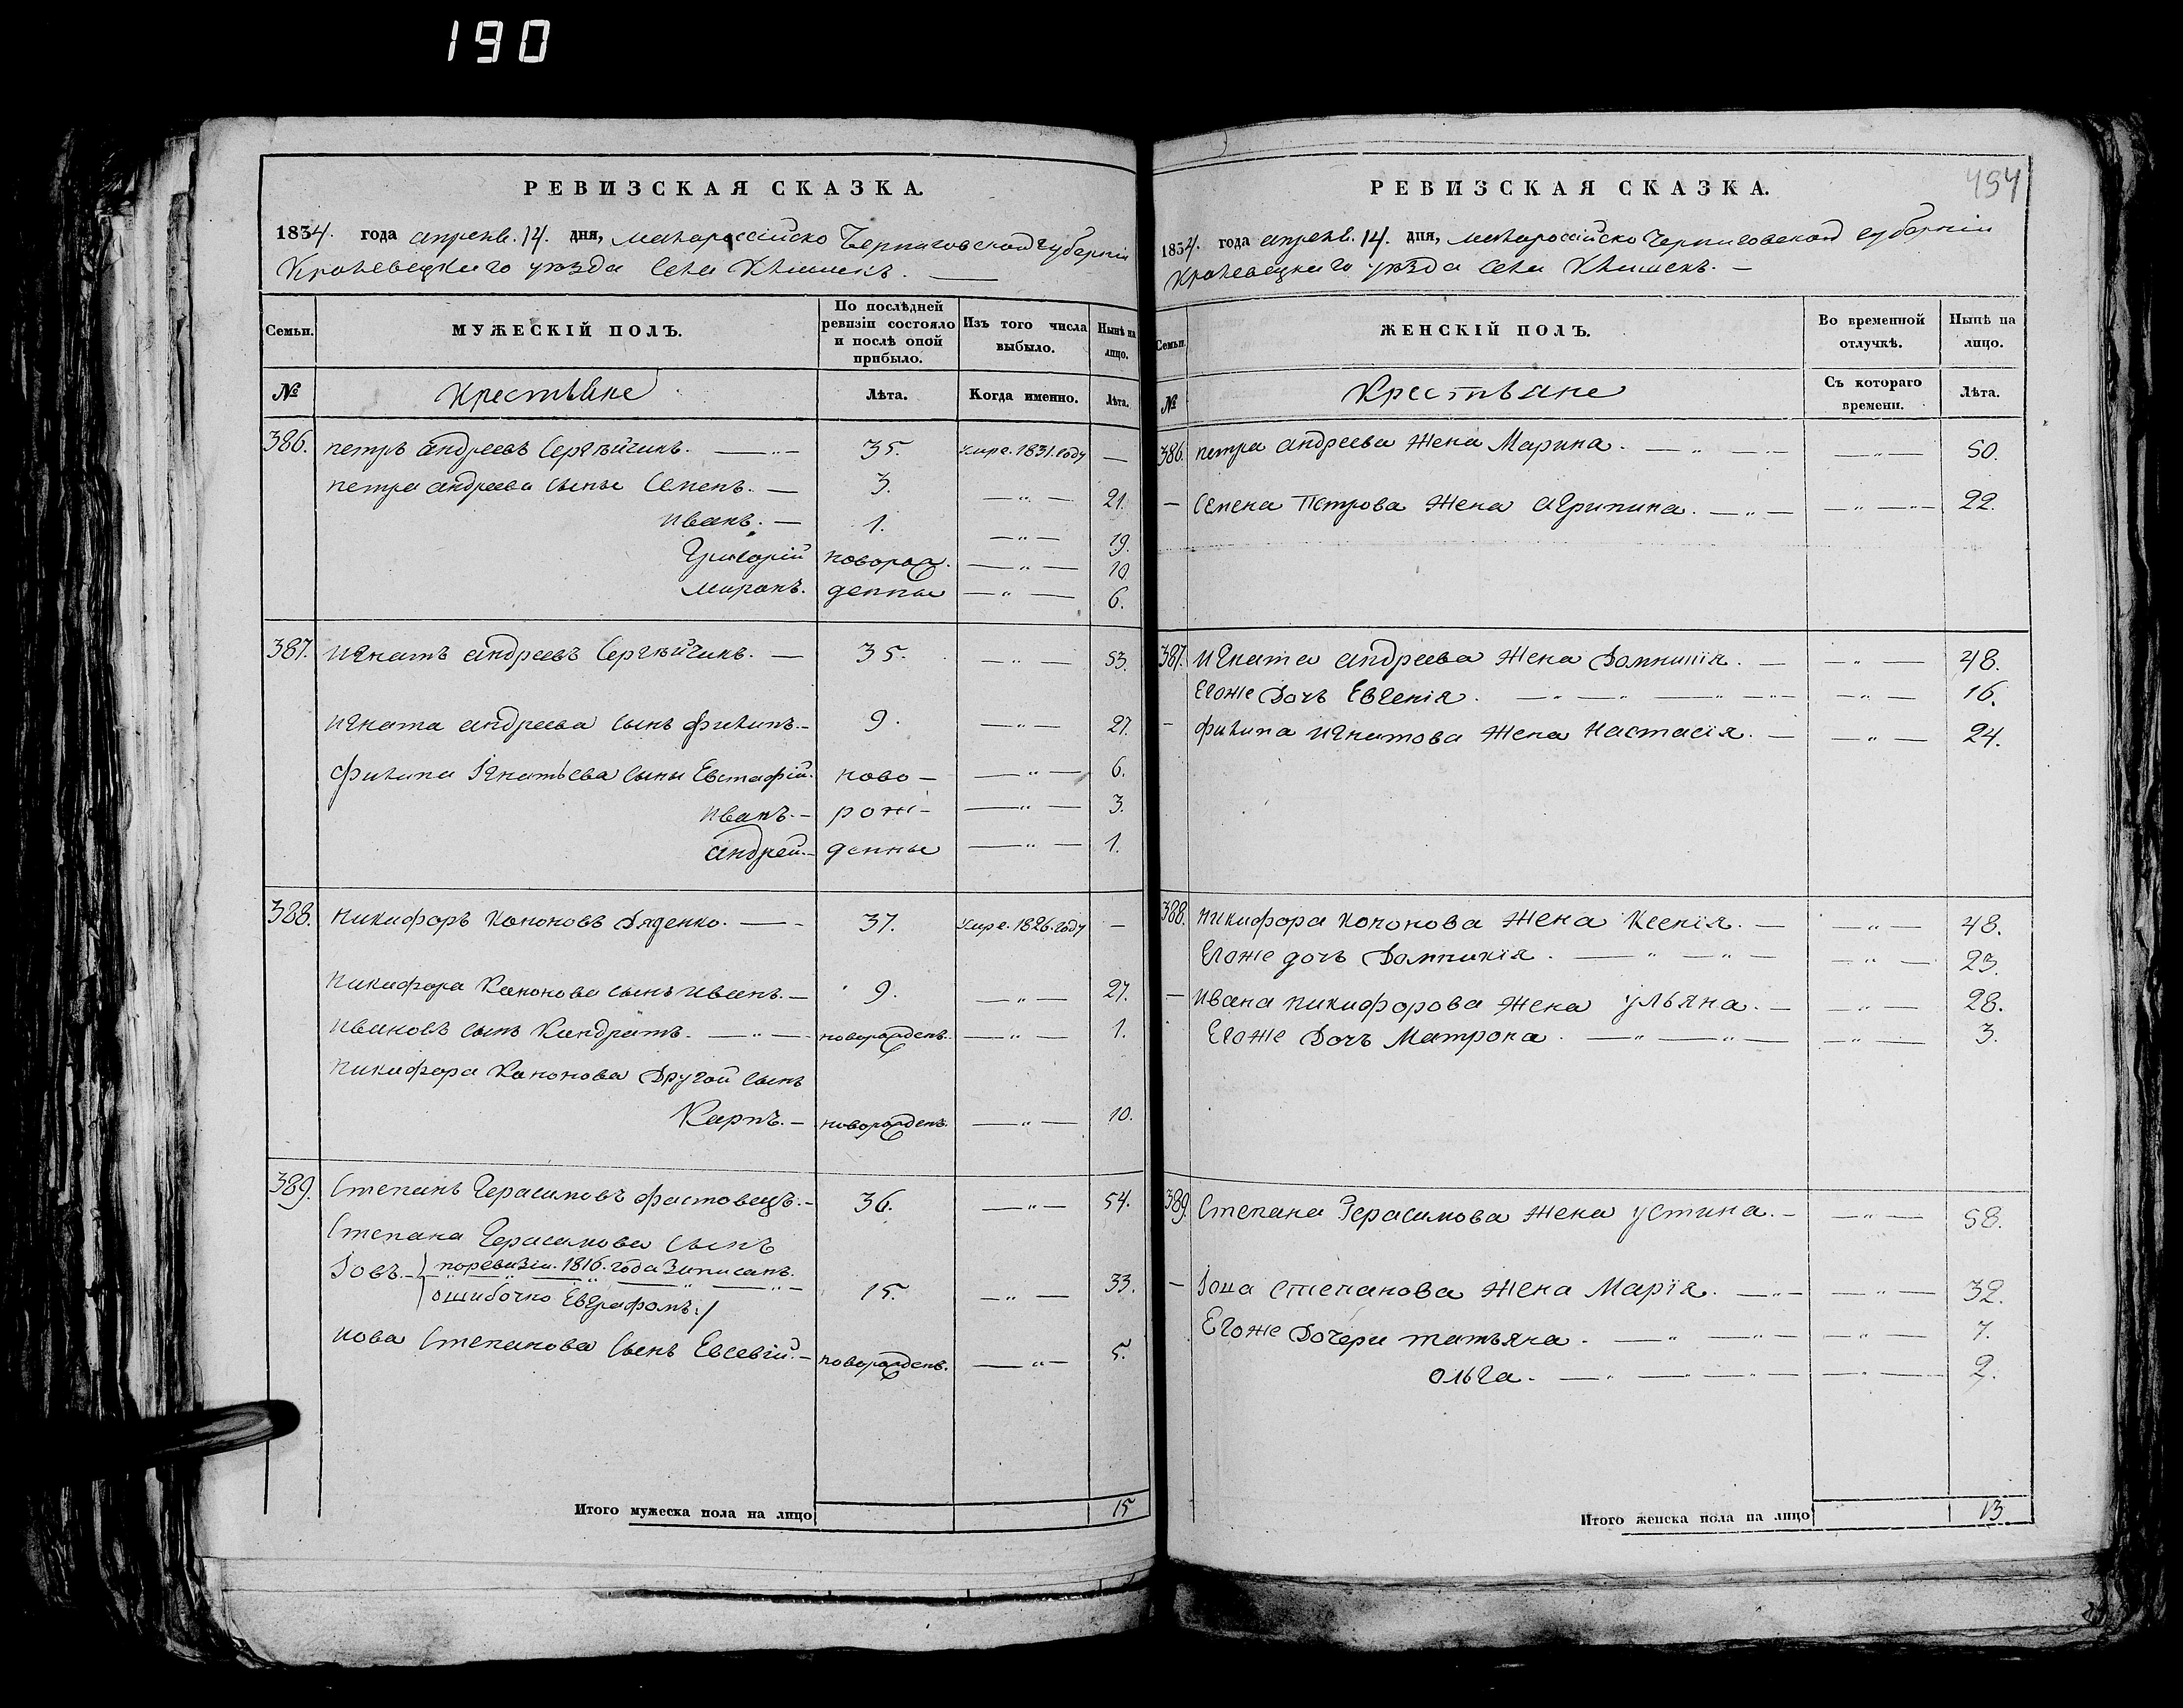 190
РЕВИЗСКАЯ СКАЗКА.
1834. года апреля. 14. дня, малороссійско Черниговской губерніи
Кролевецкаго уезда села Клишекъ.
Семьи.
МУЖЕСКІЙ ПОЛЪ.
По послѣдней ревизіи состояло и послѣ оной прибыло.
Изъ того числа выбыло.
Нынѣ на лицо.
№
Крестьяне
Лѣта.
Когда именно.
Лѣта.
386. петръ андреевъ Сергѣйчикъ. 35. умре. 1831. году —
петра андреева сыны Семенъ. 3. — " — 21.
иванъ. — 1. — " — 19.
Григорій новорож. — " — 10
миронъ. денны — " — 6.
387. игнатъ андреевъ Сергѣйчикъ. — 35. — " — 53.
игната андреева сынъ филипъ. — 9. — " — 27.
филипа Игнатьева сыны Евстафій. ново — — " — 6.
иванъ. — рож — — " — 3.
андрей. — денны — " — 1.
388. никифоръ кононовъ Дяденко. 37. умре. 1826. году —
никифора Кононова сынъ иванъ. — 9. — " — 27.
ивановъ сынъ Кандратъ. новорожденъ. — " — 1.
никифора Кононова Другой сынъ
Карпъ. — новорожденъ. — " — 10.
389. Степанъ Герасимовъ фастовецъ. — 36. — " — 54.
Степана Герасимова сынъ
Іовъ. — поревизіи. 1816. года Записанъ.
ошибочно Евграфомъ. / 15. — " — 33.
иова Степанова сынъ Евсевій. — новорожденъ. — " — 5.
Итого мужеска пола на лицо 15
454
РЕВИЗСКАЯ СКАЗКА.
1834. года апреля. 14. дня, малороссійско Черниговской губерніи
Кролевецкаго уезда села Клишекъ. —
Семьи.
ЖЕНСКІЙ ПОЛЪ.
Во временной отлучкѣ.
Нынѣ на лицо.
№
Крестьяне
Съ котораго времени.
Лѣта.
386. петра андреева жена Марина. — " — 50.
— Семена Петрова жена агрипина. — " — 22.
387. игната андреева жена Домникія. — — " — 48.
Егоже Дочь Евгенія. — " — 16.
— филипа игнатова жена настасія. — — " — 24.
388. никифора кононова жена Ксенія. — — " — 48.
Егоже дочь Домникія. — " — 23.
— ивана никифорова жена ульяна. — — " — 28.
Егоже Дочь Матрона. — " — 3.
389. Степана Герасимова жена устина. — — " — 58.
— Іова степанова жена Марія. — " — 32.
Егоже Дочери татьяна. — " — 7.
ольга. — " — 2.
Итого женска пола на лицо 13